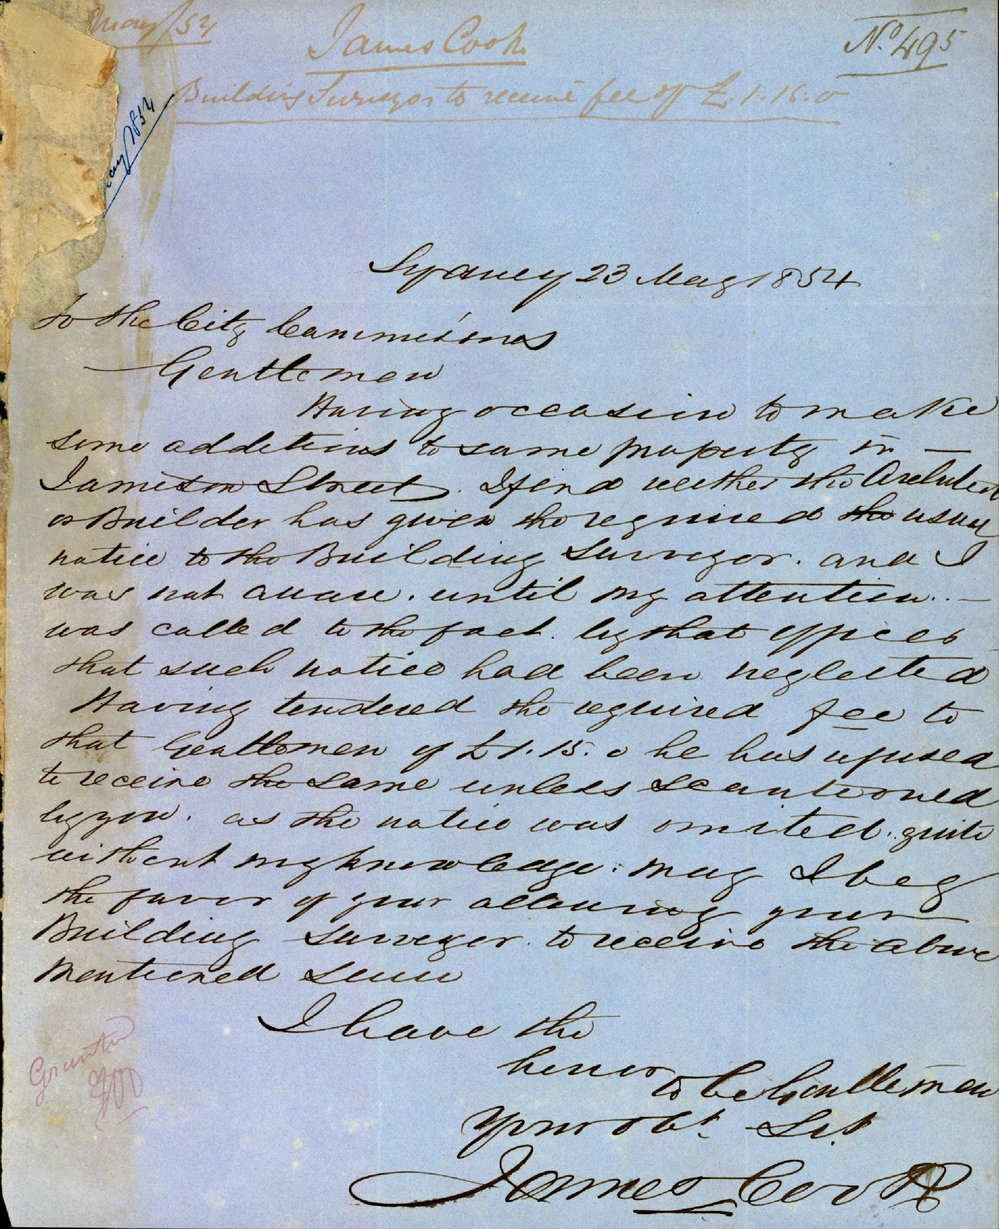 May/54
James Cook
No. 495
Building Surveyor to receive fee of £.1.15.0
May 1854
Sydney 23 May 1854
To the City Commissioners
Gentlemen
Having occasion to make
some additions to some property in —
Jamison Street. I find neither the Architect
or Builder has given the required the usual
notice to the Building Surveyor. and I
was not aware. until my attention. —
was called to the fact. by that officer
that such notice had been neglected
Having tendered the required fee to
that Gentlemen of £1.15.0 he has refused
to receive the same unless scantioned
by you. as the notice was omited. quite
without my knowledge. may I beg
the favor of your allowing your
Building Surveyor. to receive the above
mentioned sum
I have the
honor
to be Gentlemen
Your obt. Sert
James Cook
Granted